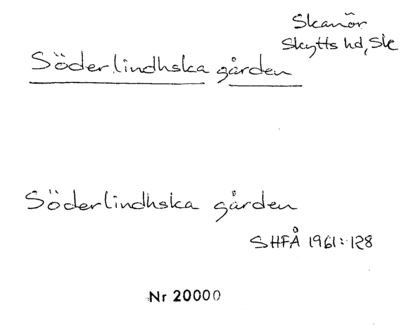 Skanör
Skytts hd, Sk
Söderlindhska gården
Söderlindhska gården
SHFÅ 1961:128
Nr 20000